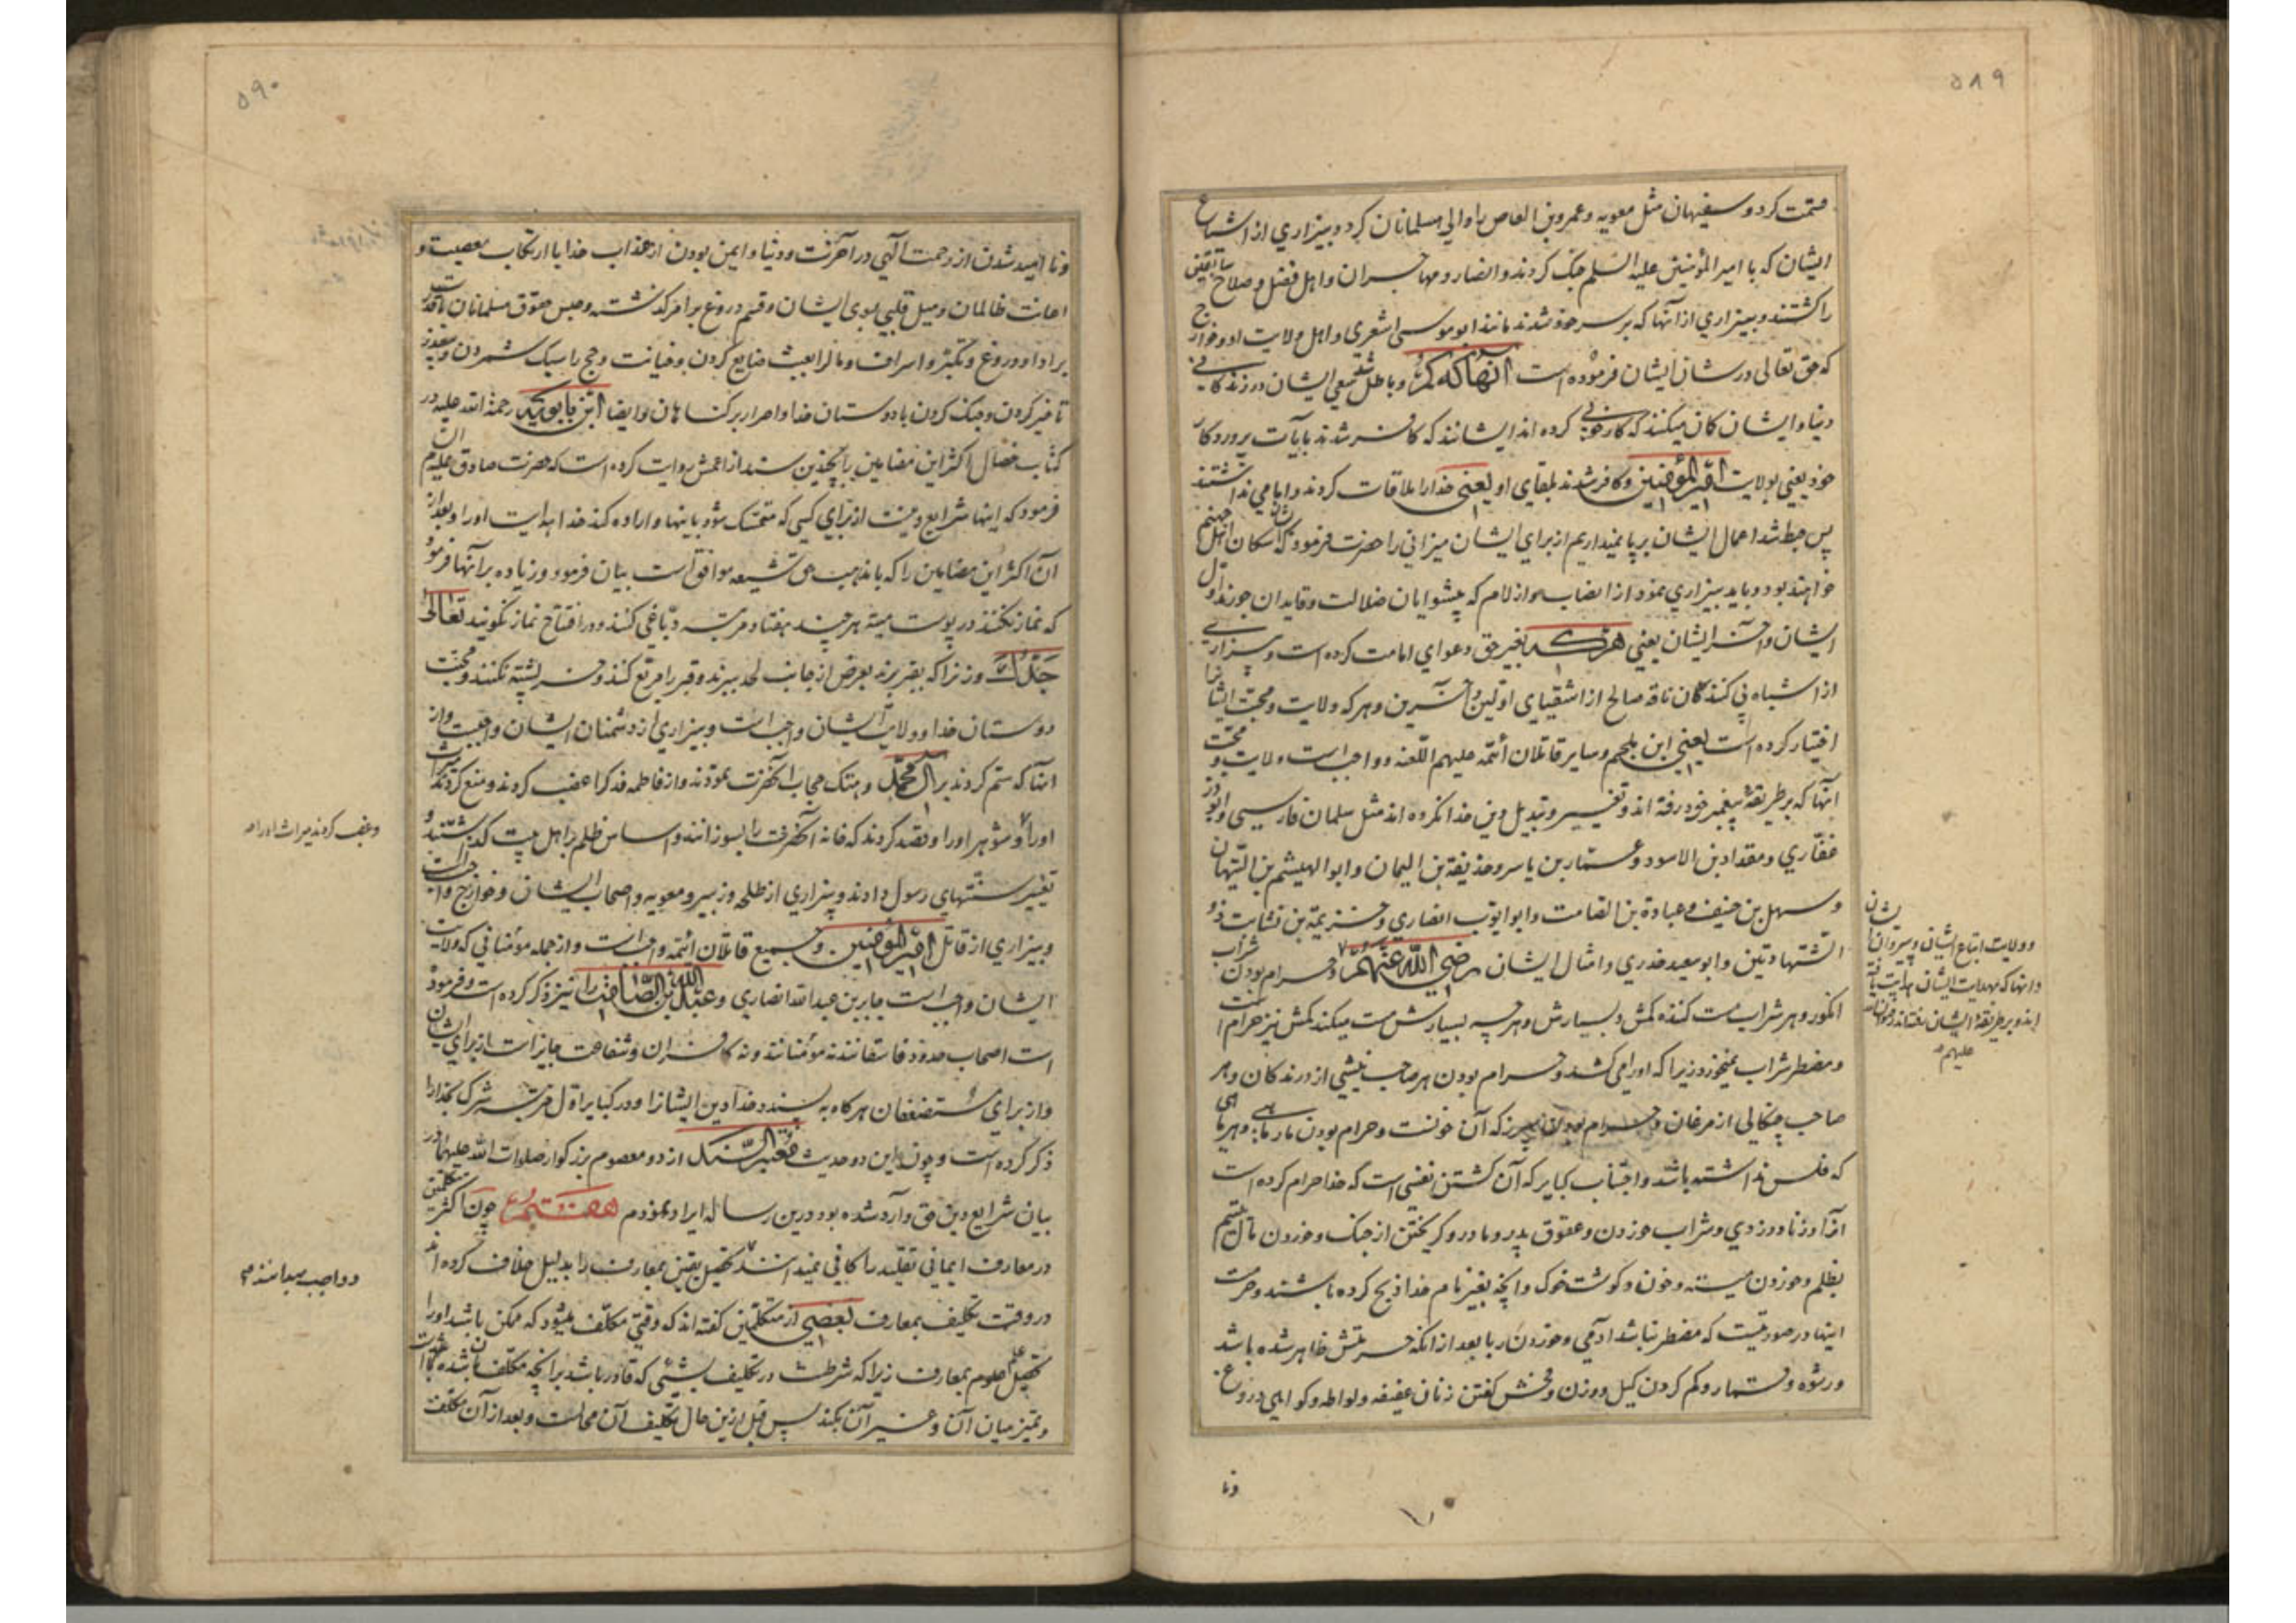 ۵۸۹
قسمت کرد و سفیهان مثل معویه و عمرو بن العاص را والی مسلمانان کرد و بیزاری از اشیاع
ایشان که با امیر المؤمنین علیه السلم جنک کردند و انصار و مهاجران و اهل فضل و صلاح سابقین
را کشتند و بیزاری از آنها که بر سر خود شدند مانند ابوموسی اشعری و اهل ولایت او و خوارج
که حق تعالی در شان ایشان فرموده است آنها که کم شد و باطل سعی ایشان در زندکانی
دنیا و ایشان کمان میکنند که کار خوبی کرده اند ایشانند که کافر شدند بآیات پروردکار
خود یعنی بولایت امیر المؤمنین و کافر شدند بلقای او یعنی خدا را ملاقات کردند و امامی نداشتند
پس حبط شد اعمال ایشان بر پا نمیداریم از برای ایشان میزانی را حضرت فرمود که ایشان سکان اهل جهنم
خواهند بود و باید بیزاری نمود از انصاب و ازلام که پیشوایان ضلالت و قایدان جورند اول
ایشان و آخر ایشان یعنی هرکه بغیر حق دعوای امامت کرده است و بیزاری
از اشباه پی کنندکان ناقه صالح از اشقیای اولین و آخرین و هر که ولایت و محبت ایشانرا
اختیار کرده است یعنی ابن ملجم و سایر قاتلان أئمه علیهم اللعنه و واجبست ولایت و محبت
آنها که بر طریقهٔ پیغمبر خود رفته اند و تغییر و تبدیل دین خدا نکرده اند مثل سلمان فارسی و ابوذر
غفاری و مقداد بن الاسود و عمار بن یاسر و حذیفة بن الیمان و ابو الهیثم بن التیهان
و سهل بن حنیف و عبادة بن الصامت و ابو ایوب انصاری و خزیمة بن ثابت ذو
الشهادتین و ابو سعید خدری و امثال ایشان رضی الله عنهم و حرام بودن شراب
انکور و هر شراب مست کننده کمش و بسیارش و هرچه بسیارش مست میکند کمش نیز حرام است
و مضطر شراب نمیخورد زیرا که او را می کشد و حرام بودن هر صاحب نیشی از درندکان و هر
صاحب چنکالی از مرغان و حرام بودن سپرز که آن خونست و حرام بودن مار ماهی و هر ماهی
که فلس نداشته باشد و اجتناب کبایر که آن کشتن نفسی است که خدا حرام کرده است
آنرا و زنا و دزدی و شراب خوردن و عقوق پدر و مادر و کریختن از جنک و خوردن مال یتیم
بظلم و خوردن میته و خون و کوشت خوک و آنچه بغیر نام خدا ذبح کرده باشند و حرمت
اینها در صورتیست که مضطر نباشد آدمی و خوردن ربا بعد از آنکه حرمتش ظاهر شده باشد
و رشوه و قمار و کم کردن کیل و وزن و فحش کفتن زنان عفیفه و لواطه و کواهی دروغ
ونا
و ولایت اتباع ایشان و پیروان ایشان
و آنها که بهدایت ایشان هدایت یافته
اند و بر طریقهٔ ایشان رفته اند رضوان الله
علیهم
۵۹۰
ونا امید شدن از رحمت آلهی در آخرت و دنیا و ایمن بودن از عذاب خدا با ارتکاب معصیت و
اعانت ظالمان و میل قلبی بسوی ایشان و قسم دروغ بر امر کذشته و حبس حقوق مسلمانان با قدرت
بر ادا و دروغ و تکبّر و اسراف و مالرا بعبث ضایع کردن و خیانت و حج را سبک شمردن و بی عذر
تاخیر کردن و جنک کردن با دوستان خدا و اصرار بر کناهان و ایضا ابن بابویه رحمة الله علیه در
کتاب خصال اکثر این مضامین را بچندین سند از اعمش روایت کرده است که حضرت صادق علیه السلام
فرمود که اینها شرایع دینست از برای کسی که متمسک شود باینها و اراده کند خدا هدایت او را و بعد از
آن اکثر این مضامین را که با مذهب حق شیعه موافق است بیان فرمود و زیاده بر آنها فرمود
که نماز نکنند در پوست میته هر چند هفتاد مرتبه دباغی کنند و در افتتاح نماز نکویند تعالی
جدک و زنرا که بقبر برند بعرض از جانب لحد ببرند و قبر را مربع کنند و خر پشته نکنند و محبت
دوستان خدا و ولایت ایشان واجبست و بیزاری از دشمنان ایشان واجبست و از
آنها که ستم کردند بر آل محمد و هتک حجاب آنحضرت نمودند و از فاطمه فدک را غصب کردند و منع کردند میراث
او را و شوهر او را و قصد کردند که خانه آنحضرت را بسوزانند و اساس ظلم بر اهل بیت کذاشتند و
تغییر سنتهای رسول دادند و بیزاری از طلحه و زبیر و معویه و اصحاب ایشان و خوارج واجبست
و بیزاری از قاتل امیر المؤمنین و جمیع قاتلان ائمه واجبست و از جمله مؤمنانی که ولایت
ایشان واجبست جابر بن عبدالله انصاری و عبدالله بن الصامت را نیز ذکر کرده است و فرموده
است اصحاب حدود فاسقانند نه مؤمنانند و نه کافران و شفاعت جایز است از برای ایشان
و از برای مستضعفان هرکاه بپسندد خدا دین ایشانرا و در کبایر اول مرتبه شرک بخدا را
ذکر کرده است و چون این دو حدیث معتبر السند از دو معصوم بزرکوار صلوات الله علیهما در
بیان شرایع دین حق وارد شده بود درین رساله ایراد نمودم هفتم چون اکثر متکلمین
در معارف ایمانی تقلید را کافی نمیدانند تحصیل یقین بمعارف را بدلیل خلاف کرده اند
در وقت تکلیف بمعارف بعضی از متکلمین کفته اند که وقتی مکلف میشود که ممکن باشد او را
تحصیل علوم بمعارف زیرا که شرطست در تکلیف بشیئی که قادر باشد بر آنچه مکلف بآن شده است
و تمیز میان آن و غیر آن بکند پس قبل ازین حال تکلیف آن محالست و بعد از آن مکلف
و غصب کردند میراث او را
و واجب میدانند